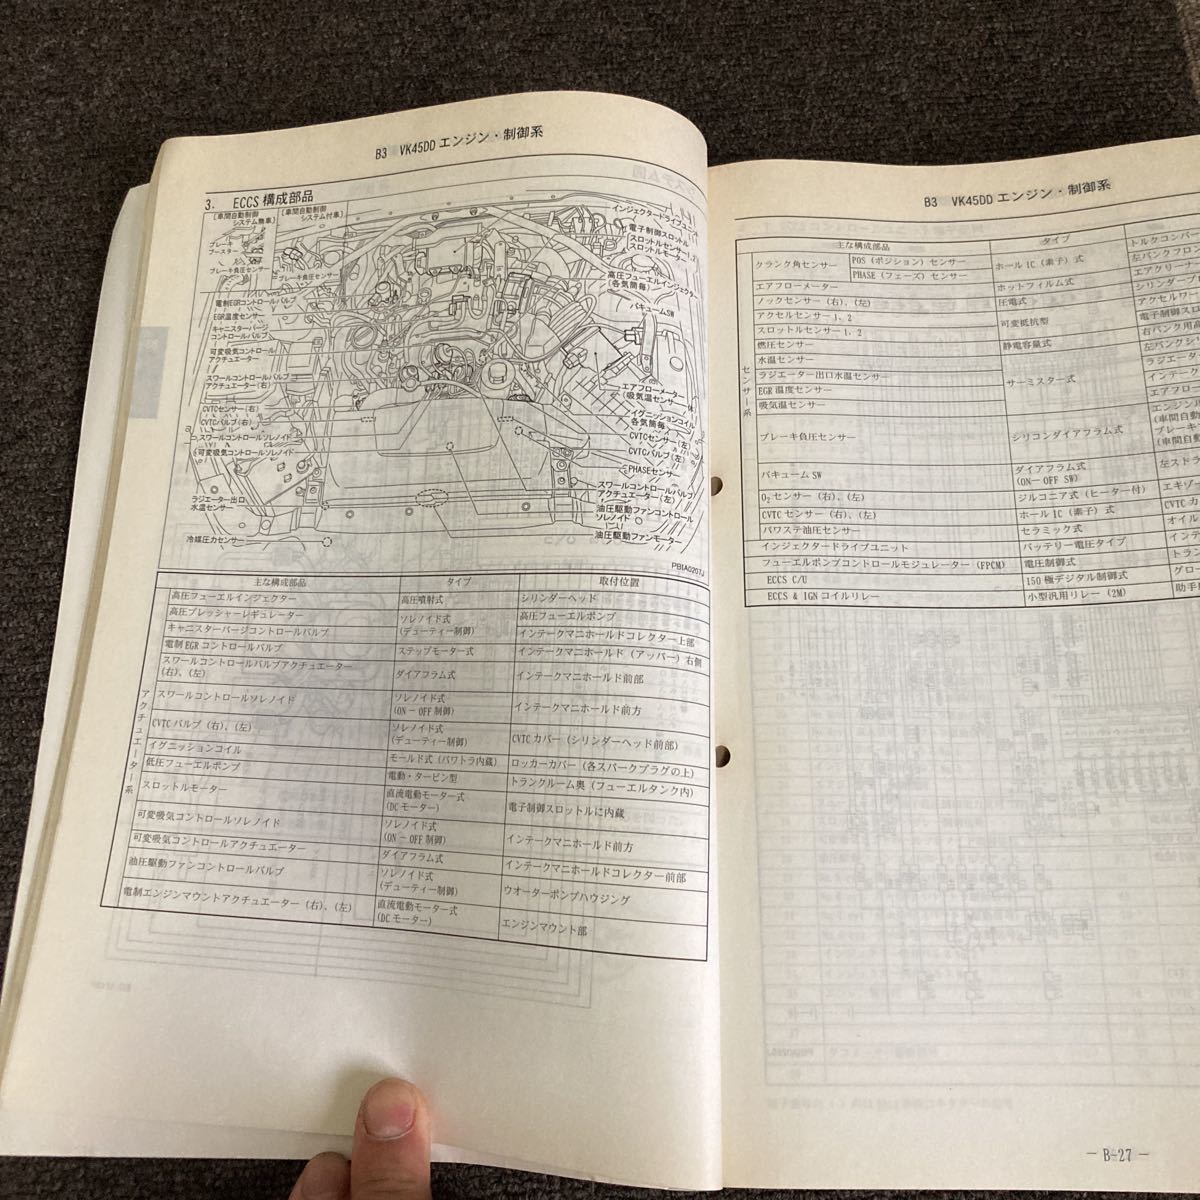 B3 VK45DD エンジン・制御系
3. ECCS 構成部品
〔車間自動制御
システム無車〕
〔車間自動制御
システム付車〕
ブレーキ
ブースター
ブレーキ負圧センサー
ブレーキ負圧センサー
電制EGRコントロールバルブ
EGR温度センサー
キャニスターパージ
コントロールバルブ
可変吸気コントロール
アクチュエーター
スワールコントロールバルブ
アクチュエーター(右)
CVTCセンサー(右)
CVTCバルブ(右)
スワールコントロールソレノイド
可変吸気コントロールソレノイド
ラジエーター出口
水温センサー
冷媒圧力センサー
インジェクタードライブユニット
電子制御スロットル
スロットルセンサー1,2
スロットルモーター
高圧フューエルインジェクター
(各気筒毎)
バキュームSW
エアフローメーター
吸気温センサー 一体
イグニッションコイル
各気筒毎
CVTCセンサー(左)
CVTCバルブ(左)
PHASEセンサー
スワールコントロールバルブ
アクチュエーター(左)
油圧駆動ファンコントロール
ソレノイド
油圧駆動ファンモーター
PBIA0207J
主な構成部品 タイプ 取付位置
アクチュエーター系
高圧フューエルインジェクター 高圧噴射式 シリンダーヘッド
高圧プレッシャーレギュレーター ソレノイド式 高圧フューエルポンプ
キャニスターパージコントロールバルブ (デューティー制御) インテークマニホールドコレクター上部
電制EGRコントロールバルブ ステップモーター式 インテークマニホールド(アッパー)右側
スワールコントロールバルブアクチュエーター
(右)、(左) ダイアフラム式 インテークマニホールド前部
スワールコントロールソレノイド ソレノイド式
(ON-OFF制御) インテークマニホールド前方
CVTCバルブ(右)、(左) ソレノイド式
(デューティー制御) CVTCカバー(シリンダーヘッド前部)
イグニッションコイル モールド式(パワトラ内蔵) ロッカーカバー(各スパークプラグの上)
低圧フューエルポンプ 電動・タービン型 トランクルーム奥(フューエルタンク内)
スロットルモーター 直流電動モーター式
(DCモーター) 電子制御スロットルに内蔵
可変吸気コントロールソレノイド ソレノイド式
(ON-OFF制御) インテークマニホールド前方
可変吸気コントロールアクチュエーター ダイアフラム式 インテークマニホールドコレクター前部
油圧駆動ファンコントロールバルブ ソレノイド式
(デューティー制御) ウオーターポンプハウジング
電制エンジンマウントアクチュエーター(右)、(左) 直流電動モーター式
(DCモーター) エンジンマウント部
B3 VK45DD エンジン・制御系
主な構成部品 タイプ
センサー系
クランク角センサー POS(ポジション)センサー ホールIC(素子)式 トルクコンバー
PHASE(フェーズ)センサー 左バンクフロ
エアフローメーター ホットフィルム式 エアクリー
ノックセンサー(右)、(左) 圧電式 シリンダー
アクセルセンサー1、2 可変抵抗型 アクセルワ
スロットルセンサー1、2 電子制御スロ
燃圧センサー 静電容量式 右バンク用
水温センサー サーミスター式 左バンクシリ
ラジエーター出口水温センサー ラジエータ
EGR温度センサー インテーク
吸気温センサー エアク
ブレーキ負圧センサー シリコンダイアフラム式 エンジンル
(車間自動
ブレーキ
(車間自動
バキュームSW ダイアフラム式
(ON-OFF SW) 左ストラ
O2センサー(右)、(左) ジルコニア式(ヒーター付) エキゾー
CVTCセンサー(右)、(左) ホールIC(素子)式 CVTCカ
パワステ油圧センサー セラミック式 オイル
インジェクタードライブユニット バッテリー電圧タイプ インテ
フューエルポンプコントロールモジュレーター(FPCM) 電圧制御式 トラン
ECCS C/U 150極デジタル制御式 グロー
ECCS & IGNコイルリレー 小型汎用リレー(2M) 助手
— B-27 —